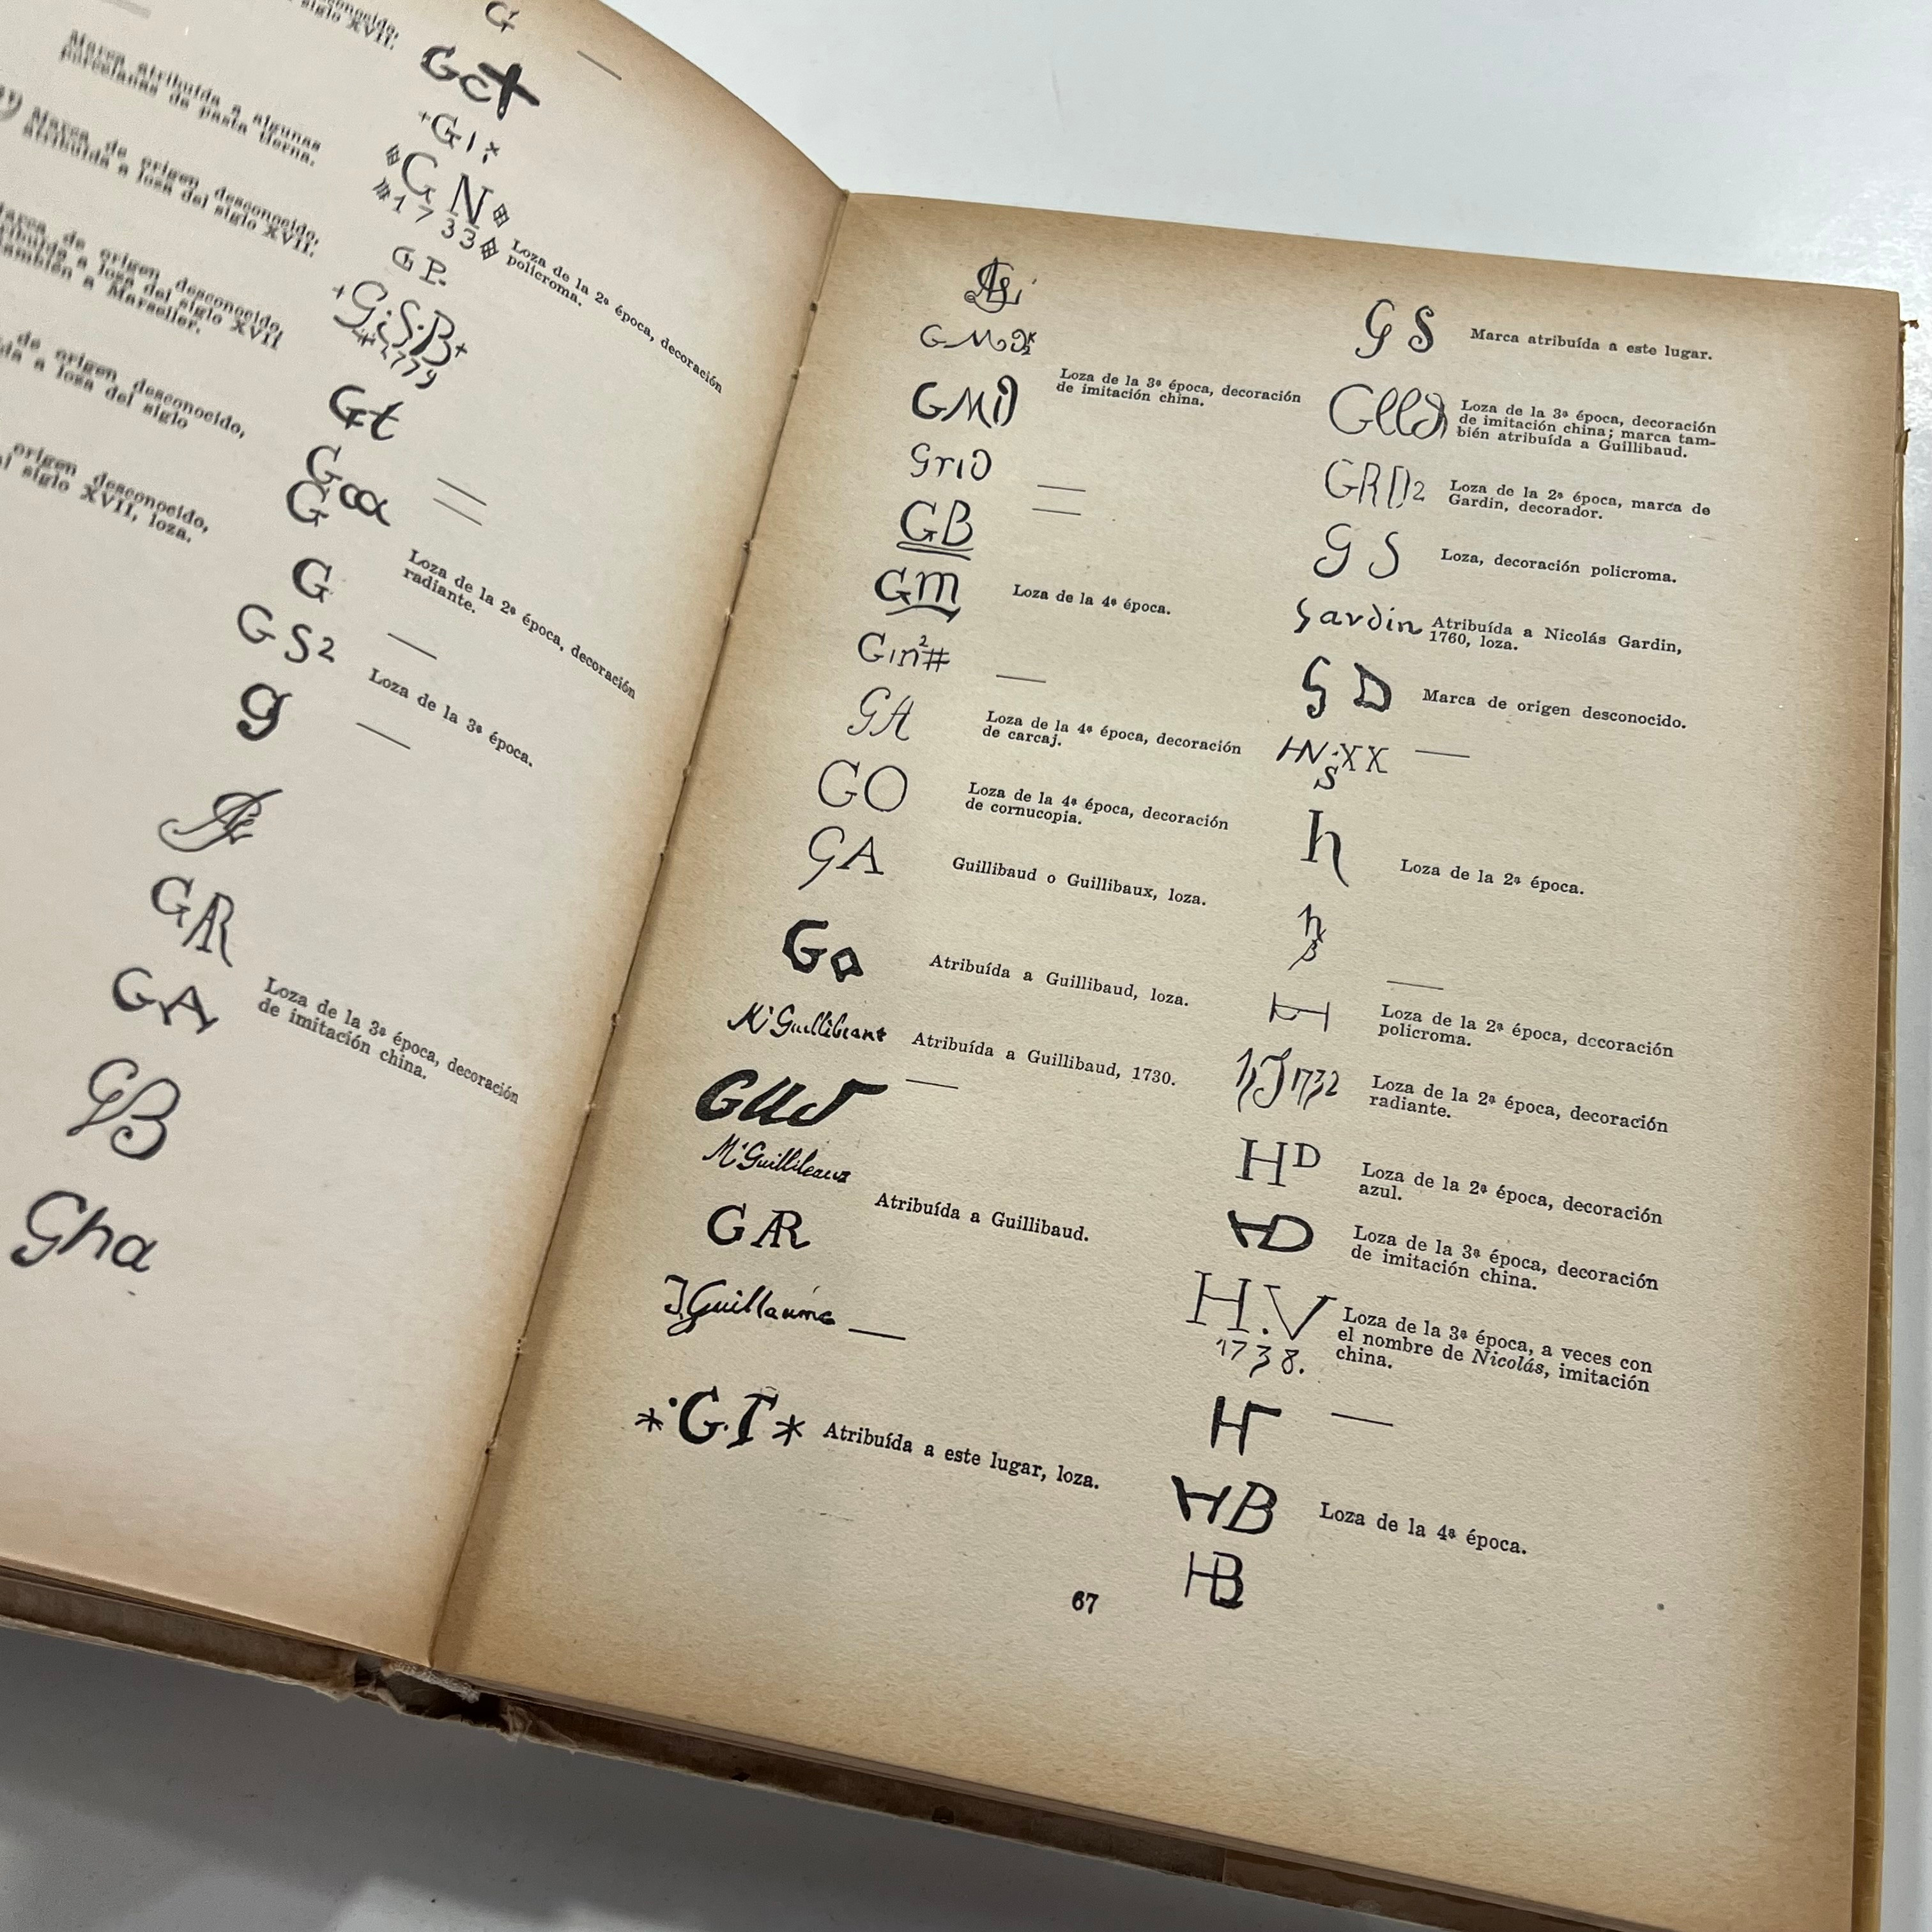 siglo XVII.
Marca atribuída a algunas
porcelanas de pasta tierna.
Marca de origen desconocido,
atribuída a loza del siglo XVII.
de origen desconocido,
a losa del siglo XVII
también a Marseller.
de origen desconocido,
a loza del siglo
origen desconocido,
siglo XVII, loza.
G
Gc
+GI
G N
1733
Loza de la 2ª época, decoración
policroma.
G P.
+G.S.B+
1779
Gt
G
G
Loza de la 2ª época, decoración
radiante.
G
G S2
Loza de la 3ª época.
g
GAR
GA
Loza de la 3ª época, decoración
de imitación china.
GB
Gha
Loza de la 3ª época, decoración
de imitación china.
GB
GM
Loza de la 4ª época.
GA
Loza de la 4ª época, decoración
de carcaj.
GO
Loza de la 4ª época, decoración
de cornucopia.
GA
Guillibaud o Guillibaux, loza.
Go
Atribuída a Guillibaud, loza.
Atribuída a Guillibaud, 1730.
M Guillibeaux
Atribuída a Guillibaud.
GAR
J. Guillaume
*·G.T*
Atribuída a este lugar, loza.
G S
Marca atribuída a este lugar.
Loza de la 3ª época, decoración
de imitación china; marca tam-
bién atribuída a Guillibaud.
GRD2
Loza de la 2ª época, marca de
Gardin, decorador.
G S
Loza, decoración policroma.
Gardin
Atribuída a Nicolás Gardin,
1760, loza.
G D
Marca de origen desconocido.
HN:XX
S
h
Loza de la 2ª época.
h
B
H
Loza de la 2ª época, decoración
policroma.
1732
Loza de la 2ª época, decoración
radiante.
HD
Loza de la 2ª época, decoración
azul.
HD
Loza de la 3ª época, decoración
de imitación china.
H.V
1738.
Loza de la 3ª época, a veces con
el nombre de Nicolás, imitación
china.
H
HB
Loza de la 4ª época.
HB
67